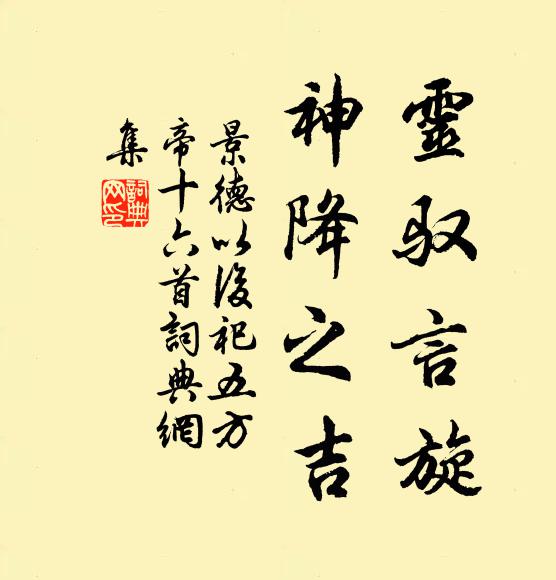 靈驭言旋
神降之吉
景德以後祀五方
帝十六首詞典網
集
詞典
网印